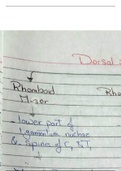 Dorsal
Rhomboid
Minor
Rho
→ lower part of
ligamentum nuchae
& spine of C, &T,